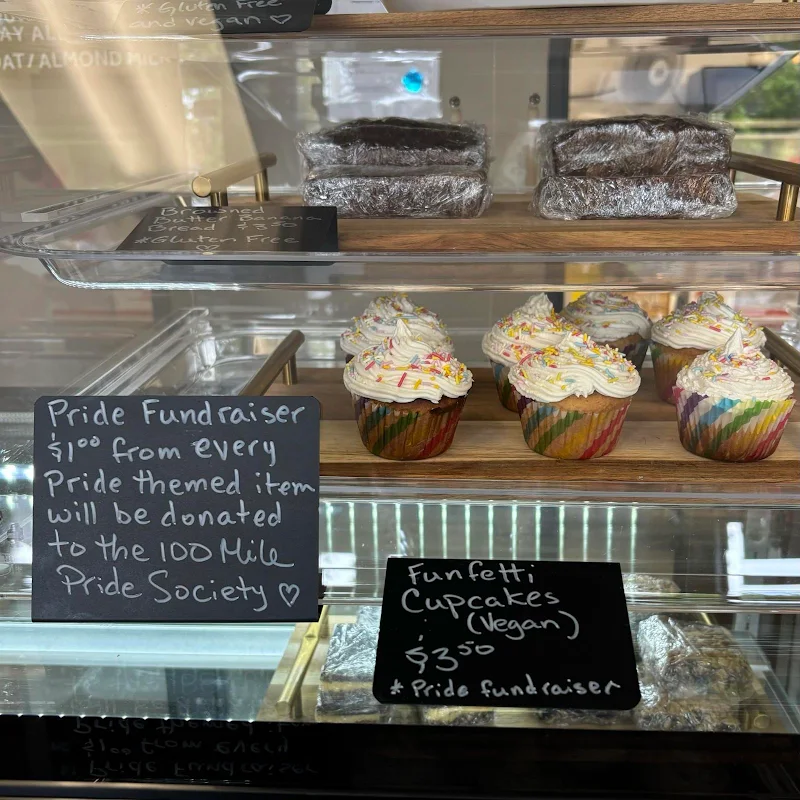 *Gluten Free
and vegan ♡
AY AL
OAT/ALMOND MILK
Browned
Butter Banana
Bread $3.50
*Gluten Free
♡
Pride Fundraiser
$1.00 from every
Pride themed item
will be donated
to the 100 Mile
Pride Society ♡
Funfetti
Cupcakes
(Vegan)
$3.50
* Pride fundraiser